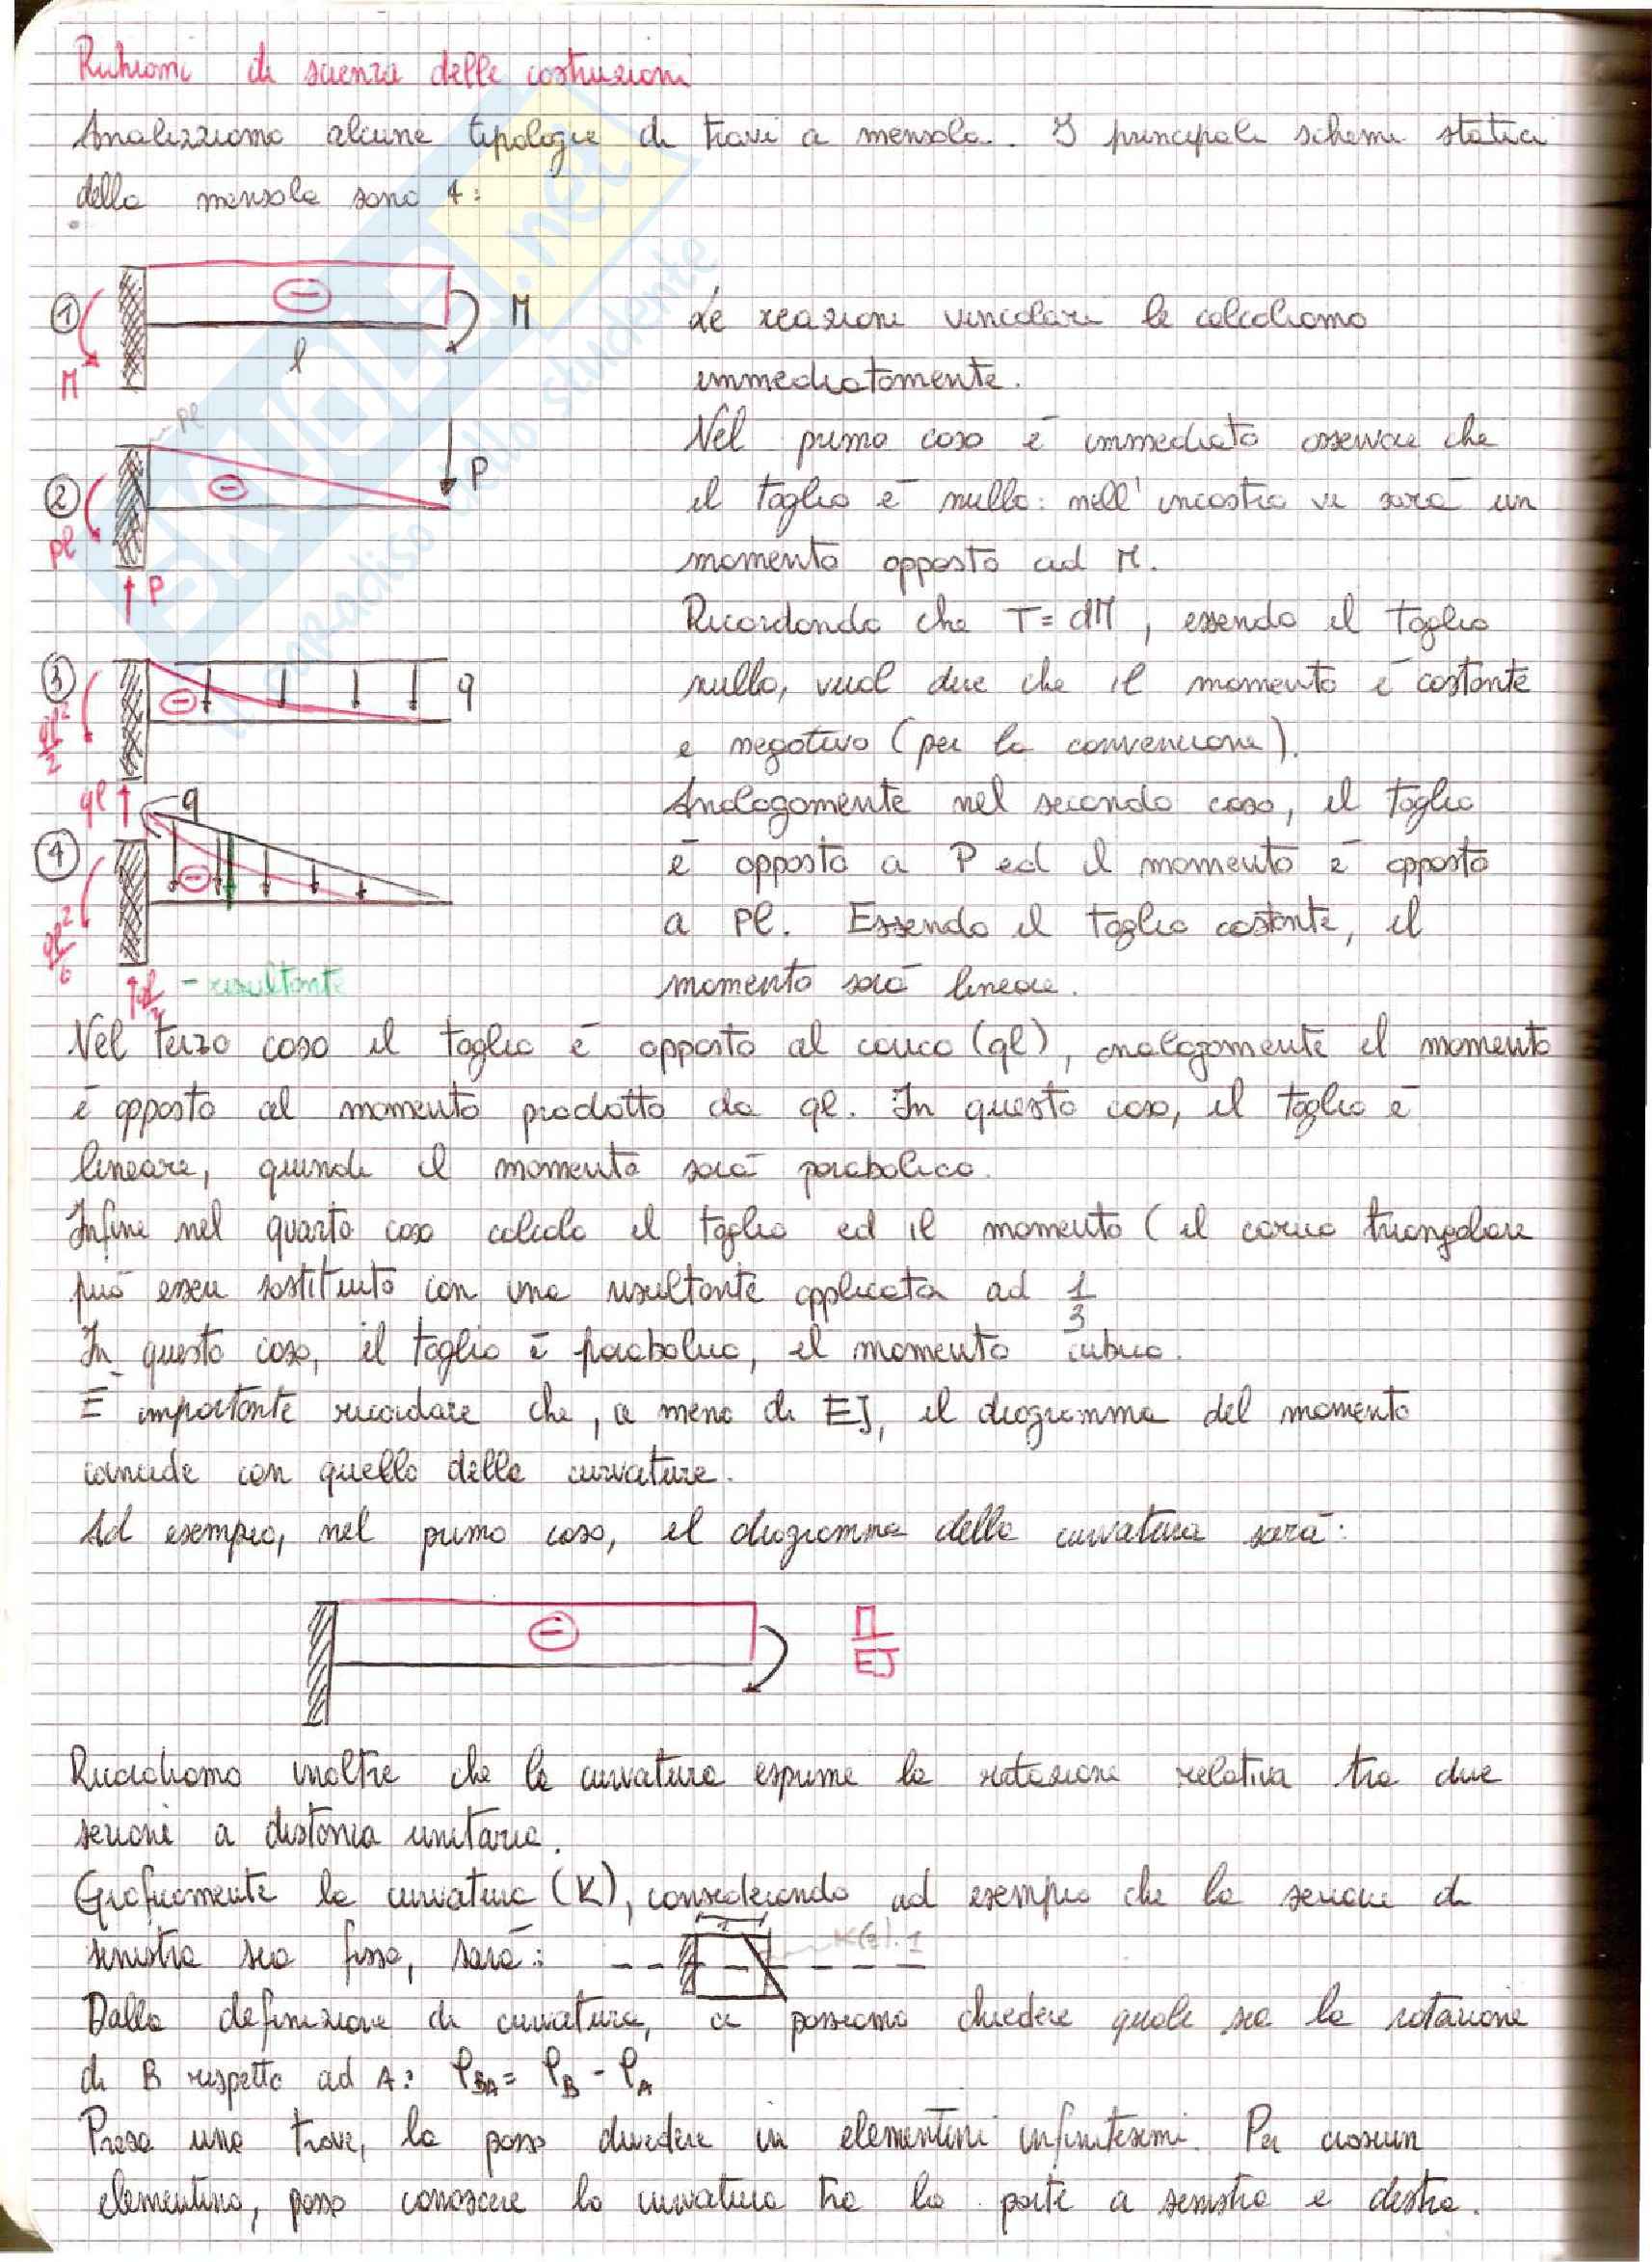 Richiami di scienza delle costruzioni
Analizziamo alcune tipologie di travi a mensola. I principali schemi statici
della mensola sono 4:
1 M l M
Le reazioni vincolari le calcoliamo
immediatamente.
2 Pl Pl P P
Nel primo caso è immediato osservare che
il taglio è nullo: nell'incastro vi sarà un
momento opposto ad M.
Ricordando che T = dM, essendo il taglio
3 ql²/2 ql q
nullo, vuol dire che il momento è costante
e negativo (per la convenzione).
Analogamente nel secondo caso, il taglio
4 q ql²/6 ql/2 - risultante
è opposto a P ed il momento è opposto
a Pl. Essendo il taglio costante, il
momento sarà lineare.
Nel terzo caso il taglio è opposto al carico (ql), analogamente il momento
è opposto al momento prodotto da ql. In questo caso, il taglio è
lineare, quindi il momento sarà parabolico.
Infine nel quarto caso calcolo il taglio ed il momento (il carico triangolare
può essere sostituito con una risultante applicata ad 1/3
In questo caso, il taglio è parabolico, il momento cubico.
È importante ricordare che, a meno di EJ, il diagramma del momento
coincide con quello delle curvature.
Ad esempio, nel primo caso, il diagramma della curvatura sarà:
M/EJ
Ricordiamo inoltre che la curvatura esprime la rotazione relativa tra due
sezioni a distanza unitaria.
Graficamente la curvatura (K), considerando ad esempio che la sezione di
sinistra sia fissa, sarà: 1 K(z)·1
Dalla definizione di curvatura, ci possiamo chiedere quale sia la rotazione
di B rispetto ad A: φBA = φB - φA
Presa una trave, la posso dividere in elementini infinitesimi. Per ciascun
elementino, posso conoscere la curvatura tra la parte a sinistra e destra.
SKUOLA.net
il paradiso dello studente